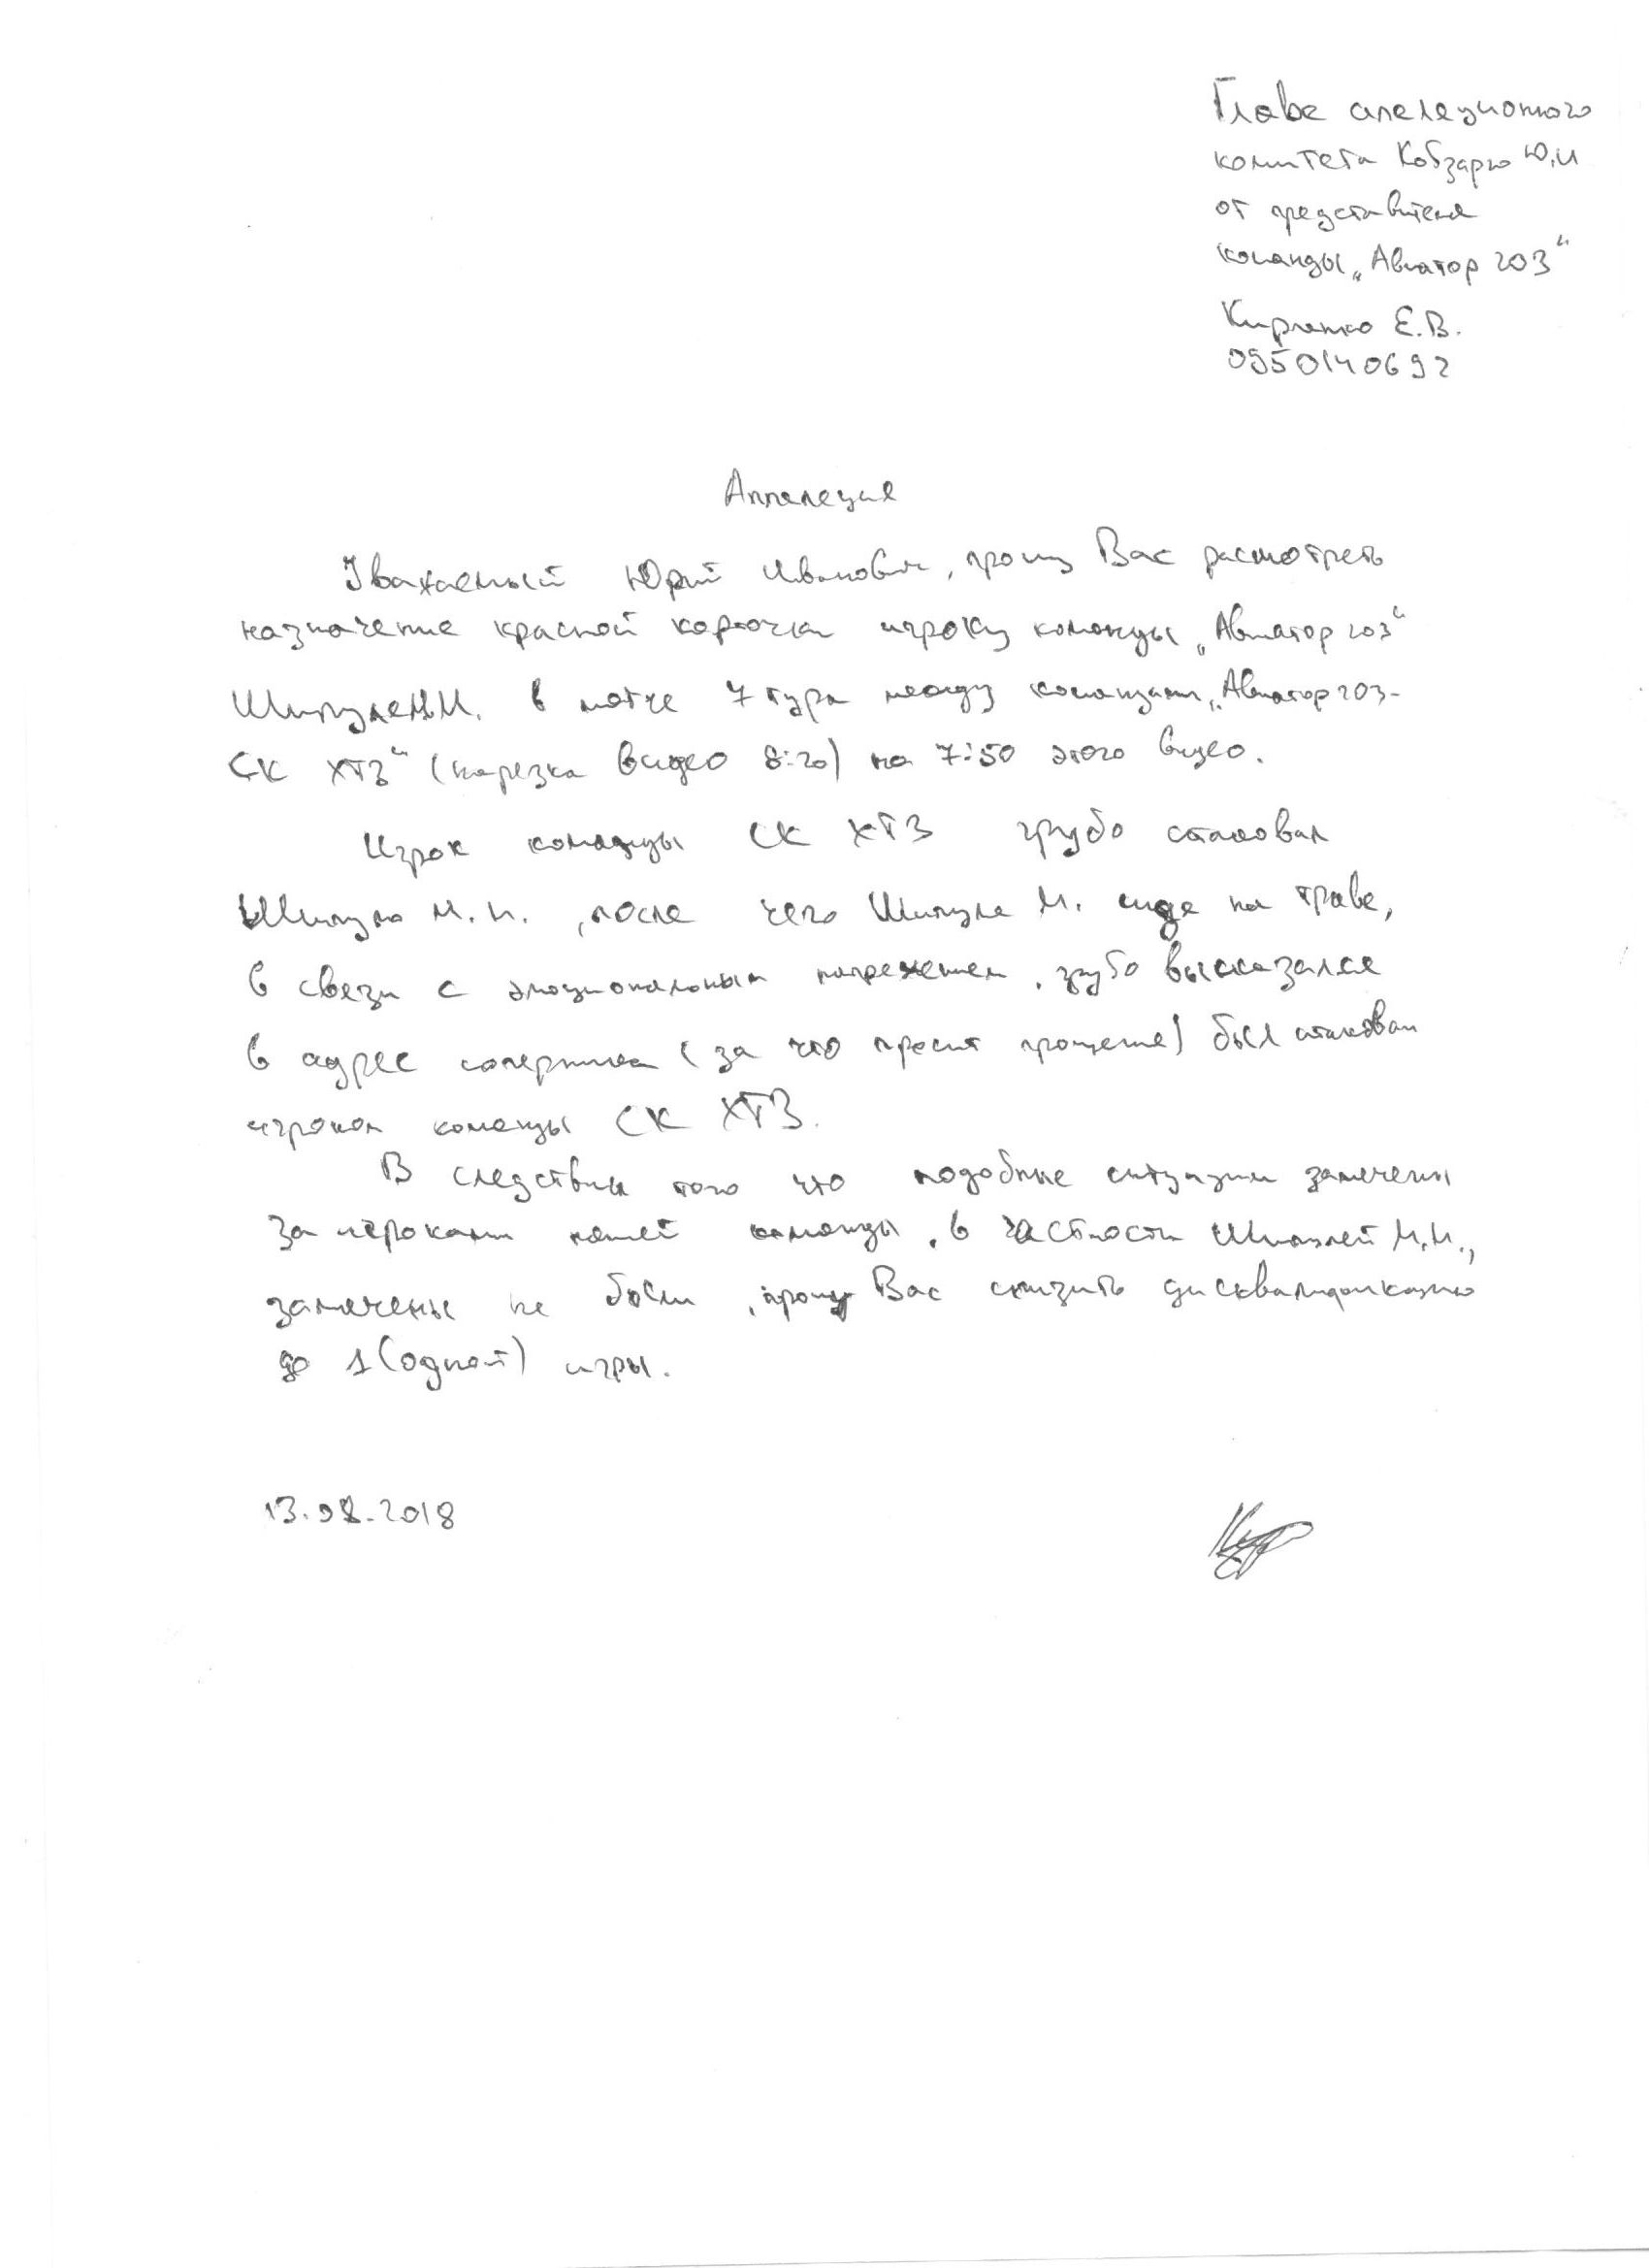 Главе апеляционного
комитета Кобзарю Ю.И
от представителя
команды „Авиатор 203“
Кириенко Е.В.
0950140692
Аппеляция
Уважаемый Юрий Иванович, прошу Вас расмотреть
назначение красной карточки игроку команды „Авиатор 203“
Шипуле М.И. в матче 7 тура между командами „Авиатор 203-
СК ХТЗ“ (нарезка видео 8:20) на 7:50 этого видео.
Игрок команды СК ХТЗ грубо атаковал
Шипулю М.И., после чего Шипуля М. сидя на траве,
в связи с эмоциональным напряжением, грубо высказался
в адрес соперника (за что просит прощение) был атакован
игроком команды СК ХТЗ.
В следствии того что подобные ситуации замечены
за игроками нашей команды, в частности Шипулей М.И.,
замечены не были, прошу Вас снизить дисквалификацию
до 1 (одной) игры.
13.08.2018